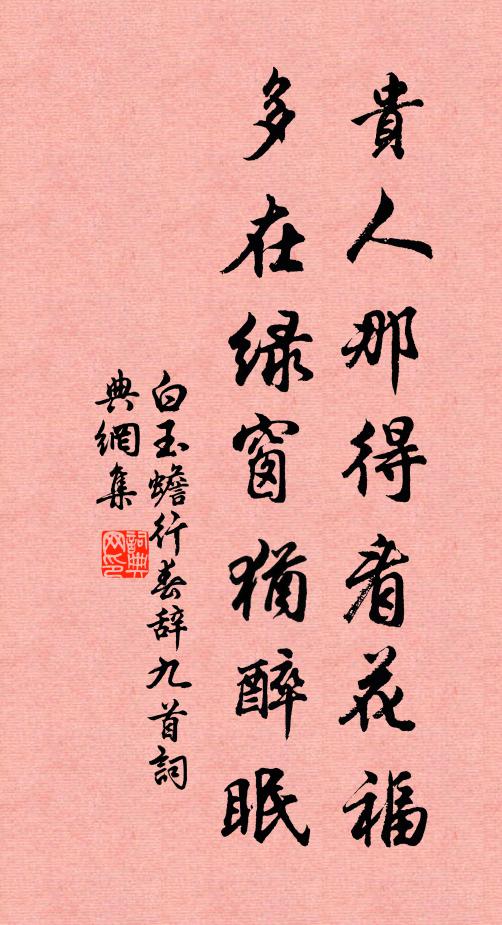 貴人那得看花福
多在緑窗猶醉眠
白玉蟾行春辞九首詞
典網集
詞典网印